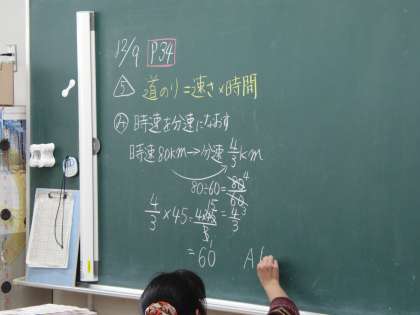 12/9 P34
⑤ 道のり=速さ×時間
Ⓐ 時速を分速になおす
時速80km→分速4/3km
80÷60=80/60 4/3
4/3×45=4×45/3 15=4/3
=60 A 6